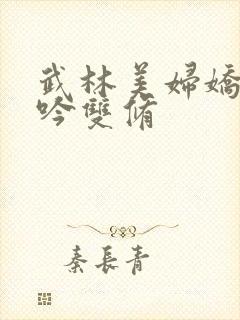 武林美婦嬌
吟雙脩
秦長青